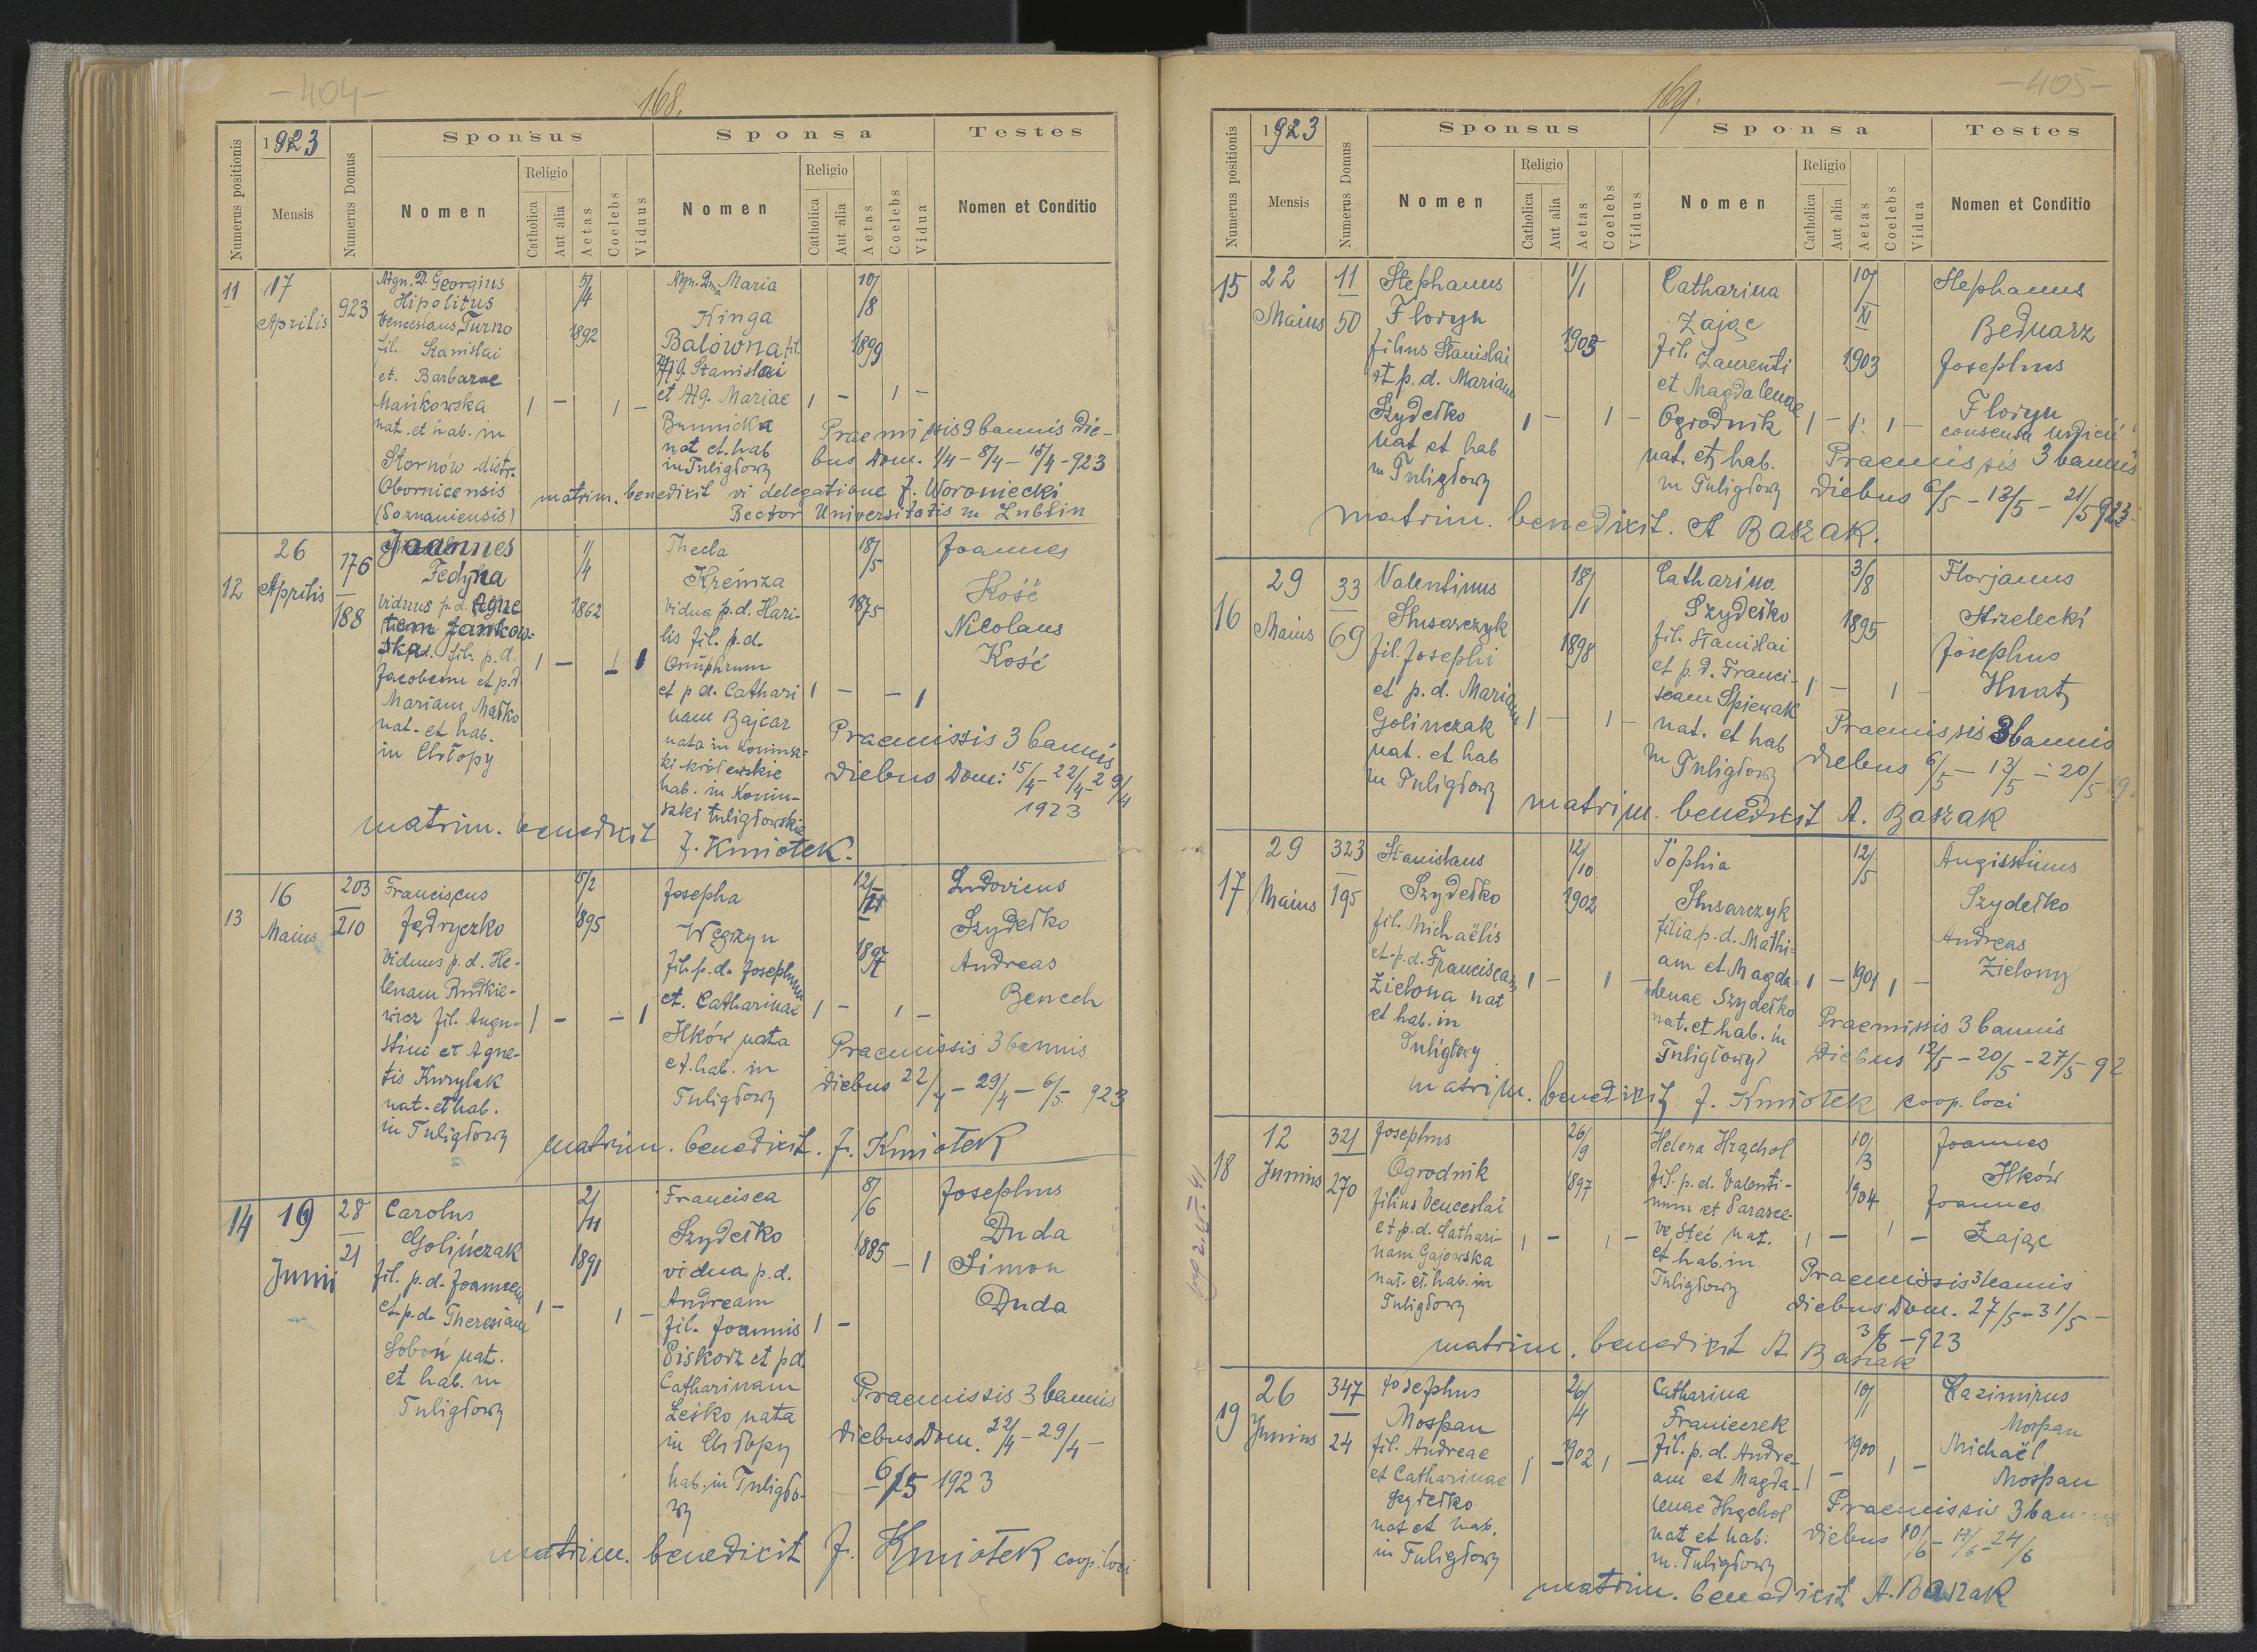 -404-
168.
1923
Sponsus
Sponsa
Testes
Numerus positionis
Mensis
Numerus Domus
Nomen
Religio
Catholica
Aut alia
Aetas
Coelebs
Viduus
Nomen
Religio
Catholica
Aut alia
Aetas
Coelebs
Vidua
Nomen et Conditio
11
17
Aprilis
923
Mgn. D. Georgius
Hipolitus
Venceslaus Turno
fil. Stanislai
et. Barbarae
Mańkowska
nat. et hab. in
Słornów - distr.
Obornicensis
(Poznaniensis)
5/4
1892
1 - 1 -
Mgn. Dna Maria
Kinga
Balówna fil.
Mg. Stanislai
et Mg. Mariae
Brunicka
nat et. hab
in Tuligłowy
10/8
1899
1 - 1 -
Praemissis 3 bannis die-
bus Dom. 1/4 - 8/4 - 15/4 - 923
matrim. benedixit vi delegatione J. Woroniecki
Rector Universitatis in Lublin
12
26
Aprilis
176
188
Joannes
Fedyna
viduus p. d. Agne
tem Jankow-
ska fil. p. d.
Jacobum et p.d.
Mariam Maśko
nat. et hab.
in Chłopy
1/4
1862
1 - - 1
Thecla
Kreniza
vidua p. d. Hari-
lis fil. p. d.
Onuphrum
et p d. Cathari
nam Bajcar
nata in Konius-
ki królewskie
hab. in Koniu-
szki tuligłowskie
18/5
1875
1 - - 1
Joannes
Kość
Nicolaus
Kość
Praemissis 3 bannis
diebus Dom: 15/4 - 22/4 - 29/4
1923
matrim. benedixit
J. Kmiotek.
13
16
Maius
203
210
Franciscus
Jędryczko
viduus p. d. He-
lenam Rudkie-
wicz fil. Augu-
stini et Agne-
tis Kurylak
nat. et hab.
in Tuligłowy
15/2
1895
1 - - 1
Josepha
Węgrzyn
fil. p. d. Josephum
et. Catharinae
Ilków nata
et. hab. in
Tuligłowy
1897
1 - 1 -
Ludovicus
Szydełko
Andreas
Benech
Praemissis 3 bannis
diebus 22/4 - 29/4 - 6/5. 923
matrim. benedixit. J. Kmiotek
14
19
Junii
28
21
Carolus
Golińczak
fil. p. d. Joannem
et. p. d. Theresiam
Soboń nat.
et hab. in
Tuligłowy
2/11
1891
1 - 1 -
Francisca
Szydełko
vidua p. d.
Andream
fil. Joannis
Piskorz et p d.
Catharinam
Leśko nata
in Chłopy
hab. in Tuligło-
wy
8/6
1885
1 - - 1
Josephus
Duda
Simon
Duda
Praemissis 3 bannis
diebus Dom. 22/4 - 29/4 -
- 6/5 1923
matrim. benedixit J. Kmiotek coop. loci
-405-
169.
1923
Sponsus
Sponsa
Testes
Numerus positionis
Mensis
Numerus Domus
Nomen
Religio
Catholica
Aut alia
Aetas
Coelebs
Viduus
Nomen
Religio
Catholica
Aut alia
Aetas
Coelebs
Vidua
Nomen et Conditio
15
22
Maius
11
50
Stephanus
Floryn
filius Stanislai
et p. d. Mariam
Szydełko
nat et hab
in Tuligłowy
1/1
1903
1 - 1 -
Catharina
Zając
fil. Laurenti
et Magdalenae
Ogrodnik
nat. et hab.
in Tuligłowy
10/XI
1903
1 - 1 -
Stephanus
Bednarz
Josephus
Floryn
Praemissis 3 bannis
diebus 6/5 - 13/5 - 21/5 923
matrim. benedixit. A Baszak.
16
29
Maius
33
69
Valentinus
Ślusarczyk
fil. Josephi
et p. d. Mariam
Golinczak
nat. et hab
in Tuligłowy
18/1
1898
1 - 1 -
Catharina
Szydełko
fil. Stanislai
et p. d. Franci-
scam Śpiewak
nat. et hab
in Tuligłowy
3/8
1895
1 - 1 -
Florjanus
Strzelecki
Josephus
Hnat
Praemissis 3 bannis
diebus 6/5 - 13/5 - 20/5
matrim. benedixit A. Baszak
17
29
Maius
323
195
Stanislaus
Szydełko
fil. Michaëlis
et. p. d. Franciscam
Zielona nat
et hab. in
Tuligłowy
12/10
1902
1 - 1 -
Sophia
Ślusarczyk
filia p. d. Mathi-
am et Magda-
lenae Szydełko
nat. et hab. in
Tuligłowy
12/5
1 - 1901 1 -
Augustinus
Szydełko
Andreas
Zielony
Praemissis 3 bannis
diebus 12/5 - 20/5 - 27/5 - 92
matrim. benedixit J. Kmiotek coop. loci
18
12
Junius
321
270
Josephus
Ogrodnik
filius Venceslai
et. p. d. Cathari-
nam Gajowska
nat. et. hab. in
Tuligłowy
26/9
1897
1 - 1 -
Helena Hrąchol
fil. p. d. Valenti-
num et Parasce-
ve Steć nat.
et hab. in
Tuligłowy
10/3
1904
1 - 1 -
Joannes
Ilków
Joannes
Zając
Praemissis 3 bannis
diebus Dom. 27/5 - 31/5 -
3/6 - 923
matrim. benedixit A. Baszak
19
26
Junius
347
24
Josephus
Mospan
fil. Andreae
et Catharinae
Szydełko
nat et hab.
in Tuligłowy
26/4
1902
1 - 1 -
Catharina
Franieczek
fil. p. d. Andre-
am et Magda-
lenae Hrąchol
nat et hab.
in. Tuligłowy
10/1
1900
1 - 1 -
Kazimirus
Mospan
Michaël
Mospan
Praemissis 3 bannis
diebus 10/6 - 17/6 - 24/6
matrim. benedixit A. Baszak